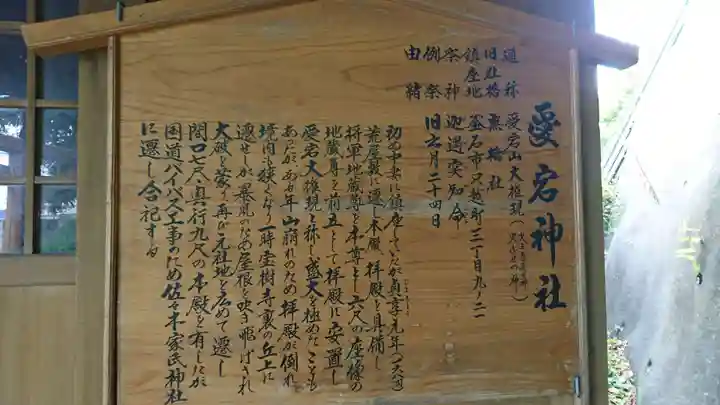 愛宕神社
通称 愛宕山大権現
旧社格 無格社
鎮座地 釜石市只越町三丁目九ノ二一
祭神 迦遇突知命
例祭 旧六月二十四日
由緒
初め中妻に鎮座していたが貞享元年
荒屋敷に遷し本殿、拝殿を具備し
将軍地蔵尊を本尊とし六尺の座像の
地蔵尊を前立として拝殿に安置し
愛宕大権現と称し盛大を極めたこともあ
ったが 年山崩れのため拝殿が倒れ
境内も狭くなり一時宝樹寺裏の丘上に
遷せしが暴風のため屋根を吹き飛ばされ
大破を蒙り再び元社地を広めて遷し
間口七尺奥行九尺の本殿を有したが
国道バイパス工事のため佐々木家氏神社
に遷し合祀する